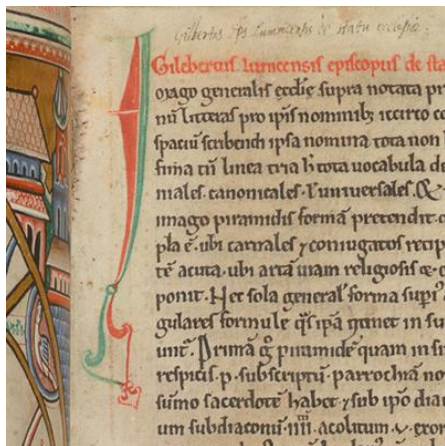 Gilbertus Eps Lummicensis de statu ecclesiæ.
Gilebertus lunicensis episcopus de sta
Imago generalis ecclie supra notata pr
nū litteras pro ip̄is nominib; iccirco co
spaciū scribendi ipsa nomina tota non
sima tn̄ linea tria h̄t tota vocabula de
males. canonicales. ł uniuersales. Q
imago piramidis formā pretendit
pla ē. ubi carnales ⁊ coniugatos recip
tē acuta. ubi artā uiam religiosis
ponit. Hec sola general' forma supi
gulares formule q̄s ip̄a
unt. Primā g̊ piramidē quam in su
respicis. p. subscriptū parrochiā no
sūmo sacerdotē habet. ⁊ sub ip̄o dia
um subdiaconū. iiii. acolitum. v. exor